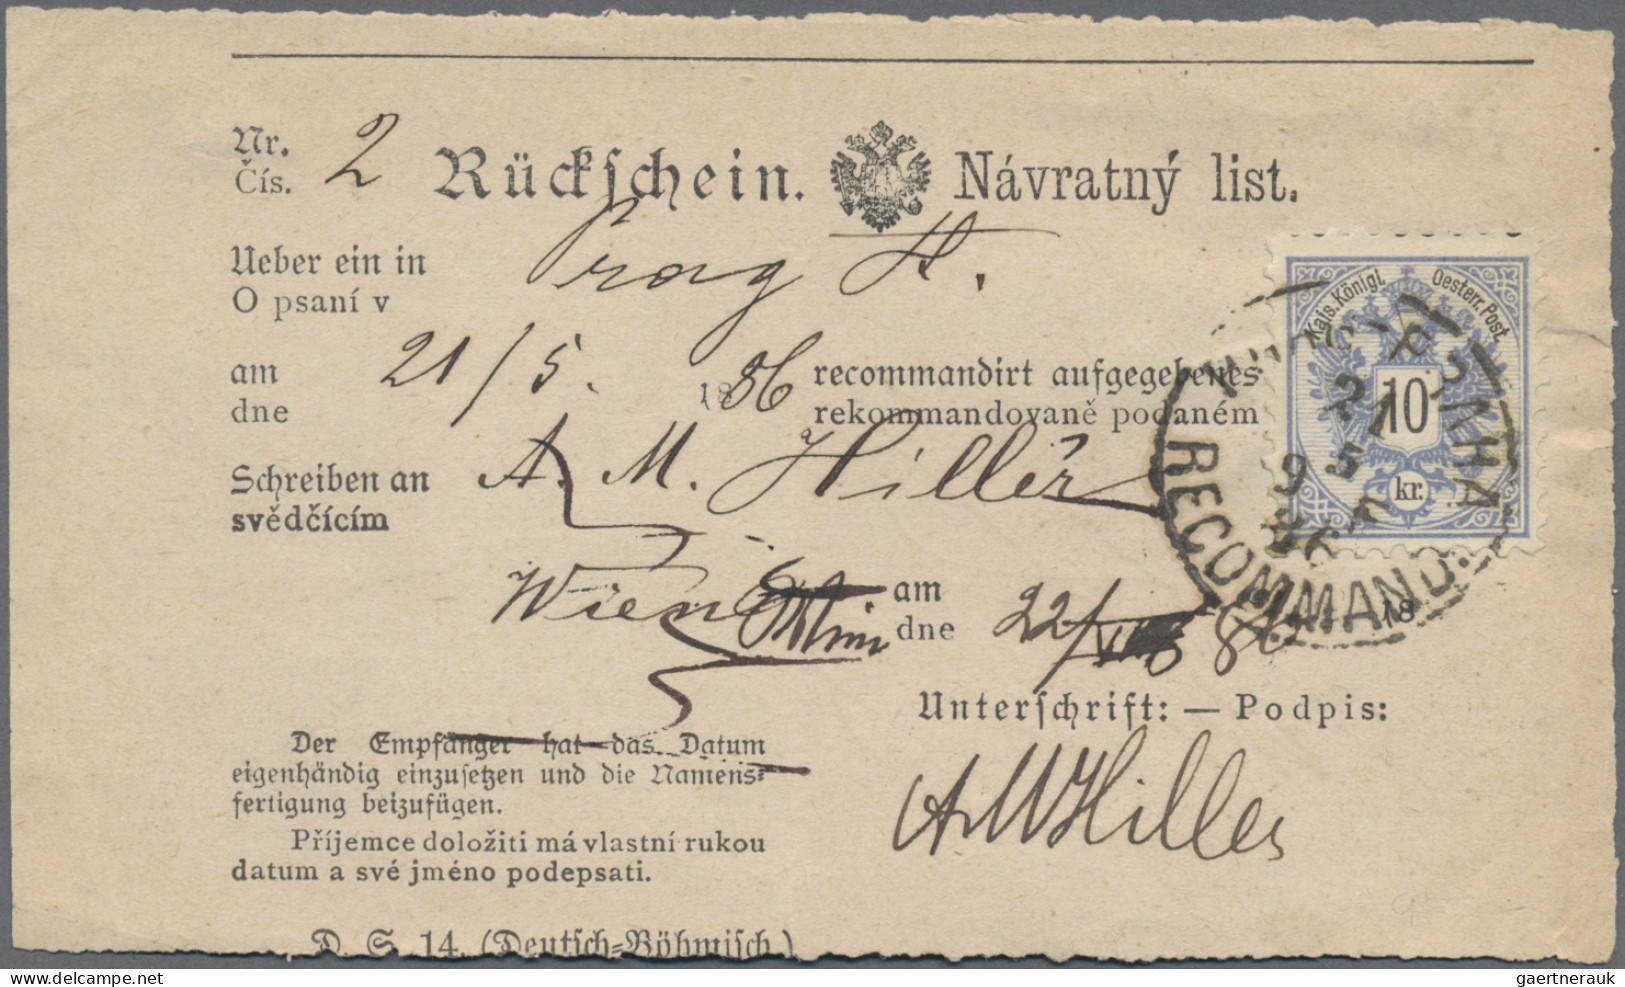 Nr. 2
Čís.
Rückschein. Návratný list.
Ueber ein in Prag
O psaní v
am 21/5. 1886 recommandirt aufgegebenes
dne rekommandovaně podaném
Schreiben an A. M. Hiller
svědčícím
Wien am
dne 22/ 86 18
Unterschrift: — Podpis:
A M Hiller
Der Empfänger hat das Datum
eigenhändig einzusetzen und die Namens=
fertigung beizufügen.
Příjemce doložiti má vlastní rukou
datum a své jméno podepsati.
D. S. 14. (Deutsch=Böhmisch.)
Kais. Königl. Oesterr. Post.
10
kr.
PRAHA
21
5
RECOMMAND.
gaertnerauk